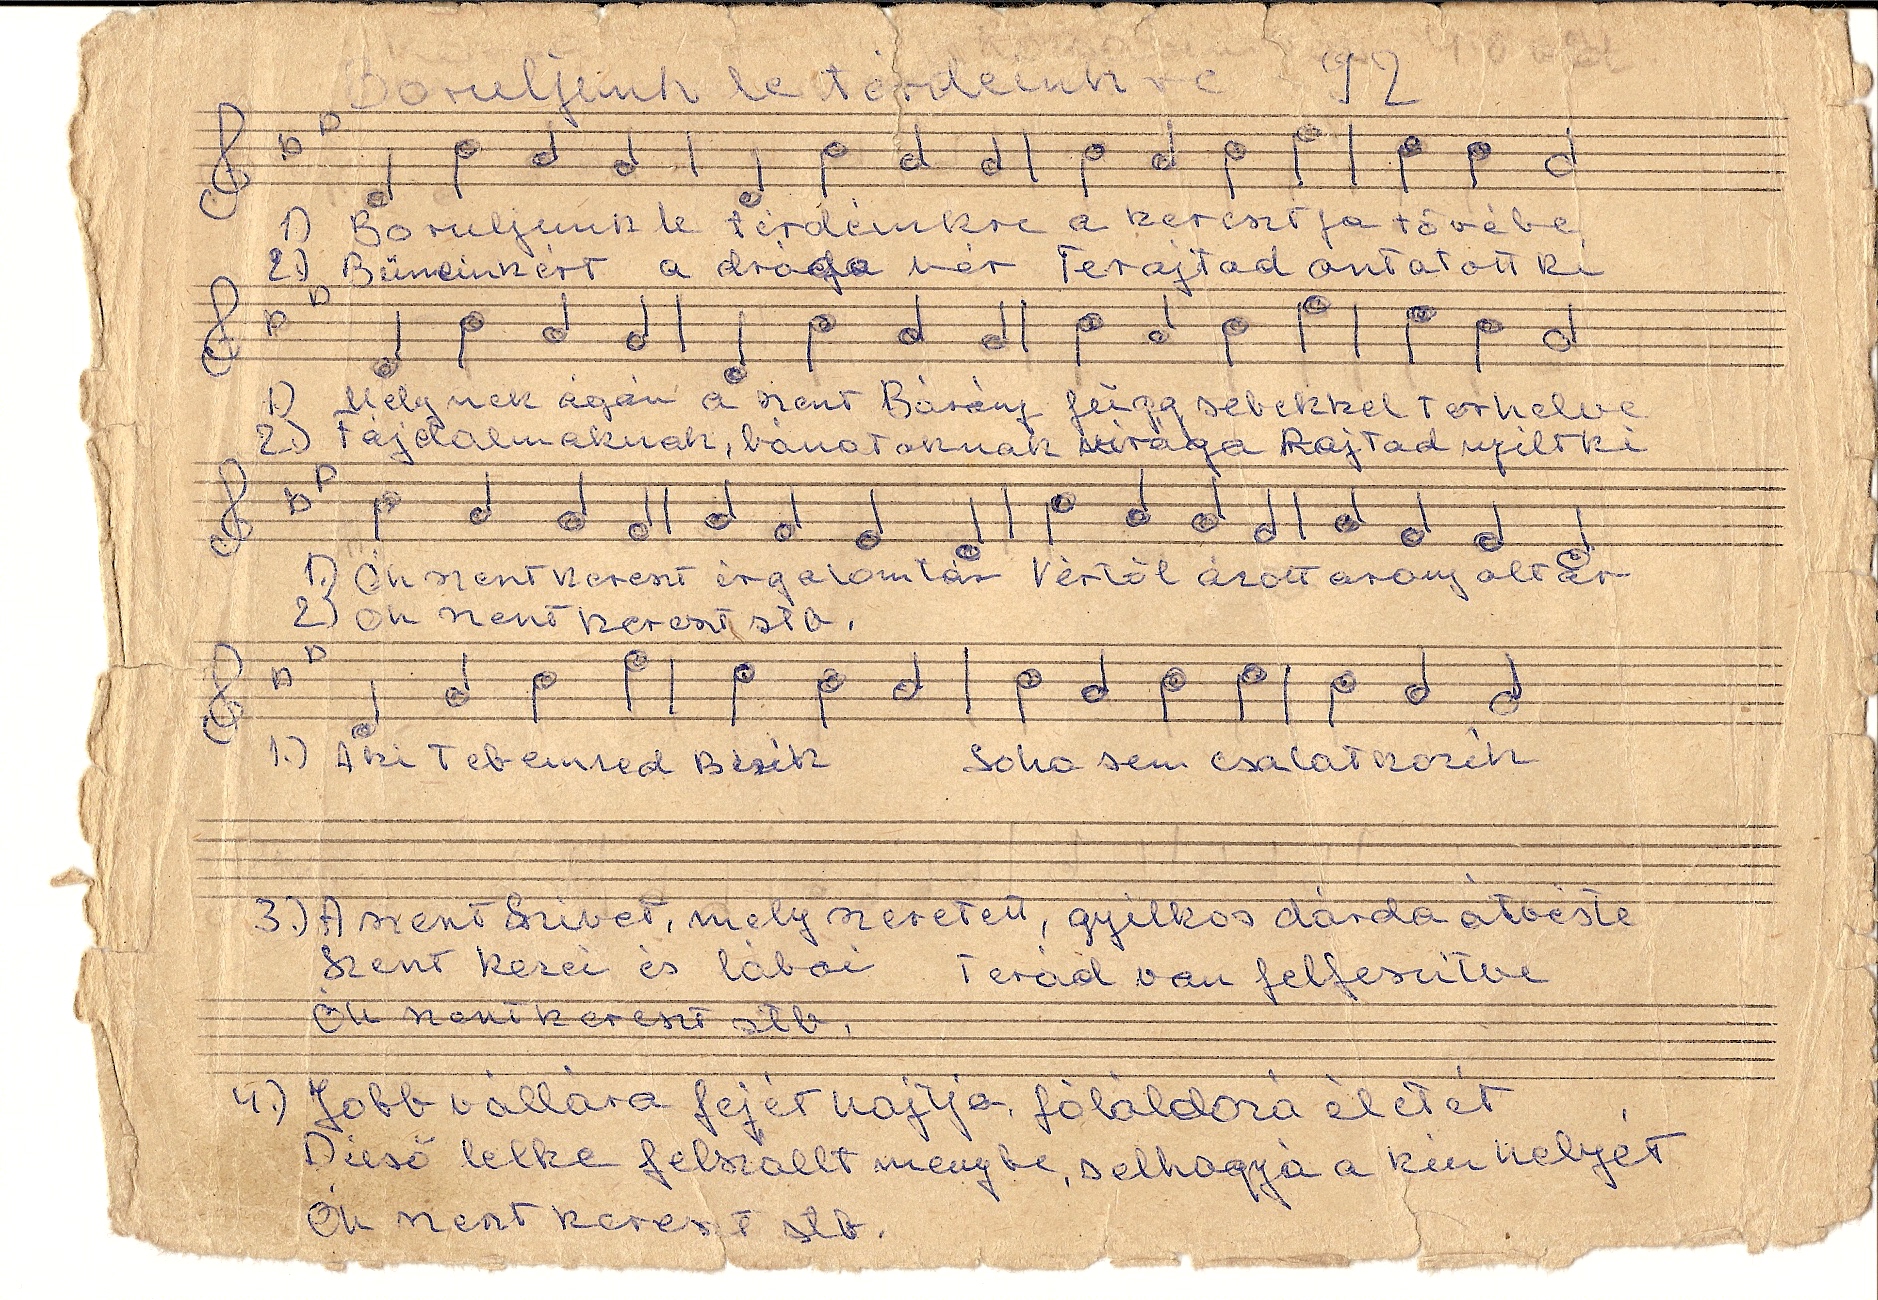 Boruljunk le térdeinkre 92
1) Boruljunk le térdeinkre a keresztfa tövébe
2.) Büneinkért a drága vér Terajtad ontatott ki
1) Melynek ágán a szent Bárány függ sebekkel terhelve
2.) Fájdalmaknak, bánatoknak virága Rajtad nyilt ki
1.) Óh szent kereszt irgalomtár Vértől ázott arany oltár
2.) Óh szent kereszt stb.
1.) Aki Tebenned Bizik Soha sem csalatkozik
3.) A szent Szivet, mely szeretett, gyilkos dárda átveste
Szent kezei és lábai Terád van felfeszitve
Óh szent kereszt stb.
4.) Jobb vállára fejét hajtja, föláldozá életét
Dicső lelke felszállt mengbe, s elhagyja a kin helyét
Óh szent kereszt stb.